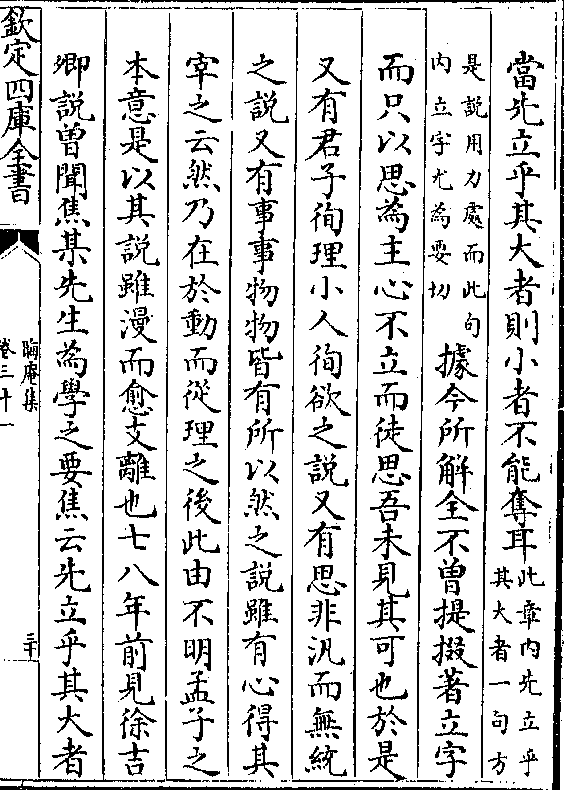 當先立乎其大者則小者不能奪耳此章内先立乎其大者一句方
是説用力處而此句内立字尤為要切據今所解全不曽提掇著立字
而只以思為主心不立而徒思吾未見其可也於是
又有君子徇理小人徇欲之説又有思非汎而無統
之説又有事事物物皆有所以然之説雖有心得其
宰之云然乃在於動而從理之後此由不明孟子之
本意是以其説雖漫而愈支離也七八年前見徐吉
卿説曽聞焦某先生為學之要焦云先立乎其大者
欽定四庫全書
晦庵集
卷三十一
三十